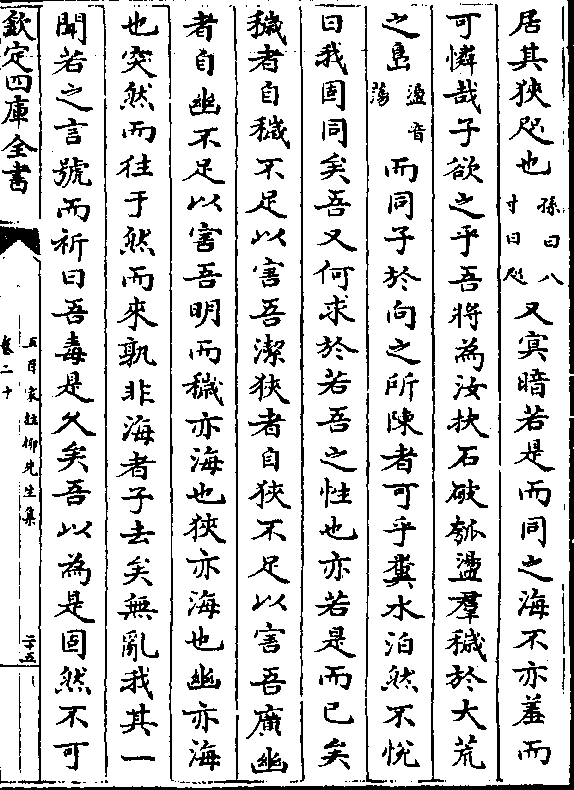 居其狹咫也孫曰八寸曰咫又㝠暗若是而同之海不亦羞而
可憐哉子欲之乎吾將為汝抉石破瓠盪羣穢於大荒
之島盪音蕩而同子於向之所陳者可乎糞水泊然不悅
曰我固同矣吾又何求於若吾之性也亦若是而已矣
穢者自穢不足以害吾潔狹者自狹不足以害吾廣幽
者自幽不足以害吾明而穢亦海也狹亦海也幽亦海
也突然而往于然而來孰非海者子去矣無亂我其一
聞若之言號而祈曰吾毒是久矣吾以為是固然不可
欽定四庫全書
五百家註柳先生集
卷二十
二十五